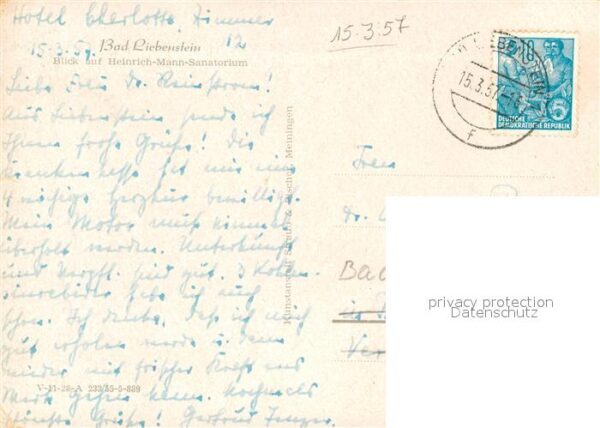 Hotel Charlotte, Zimmer
15.3.57 12
Bad Liebenstein
Blick auf Heinrich-Mann-Sanatorium
Liebe Frau Dr.
Aus Liebenstein sende ich
Ihnen frohe Grüße! Die
Krankenkasse hat mir eine
4 wöchige Herzkur bewilligt.
Mein Motor muß einmal
überholt werden. Unterkunft
und Verpfl. sind gut. 3 Kohlen-
säurebäder habe ich auch
schon. Ich denke, daß ich mich
gut erholen werde u. dann
wieder mit frischer Kraft ans
Werk gehen kann. Nochmals
schönste Grüße! Gertrud
V-11-28-A 233/55-5-889
Kunstanstalt Straub & Fischer, Meiningen
15.3.57
15.3.57
F
10
5
DEUTSCHE
DEMOKRATISCHE REPUBLIK
Frau
Dr.
Bad
in
privacy protection
Datenschutz